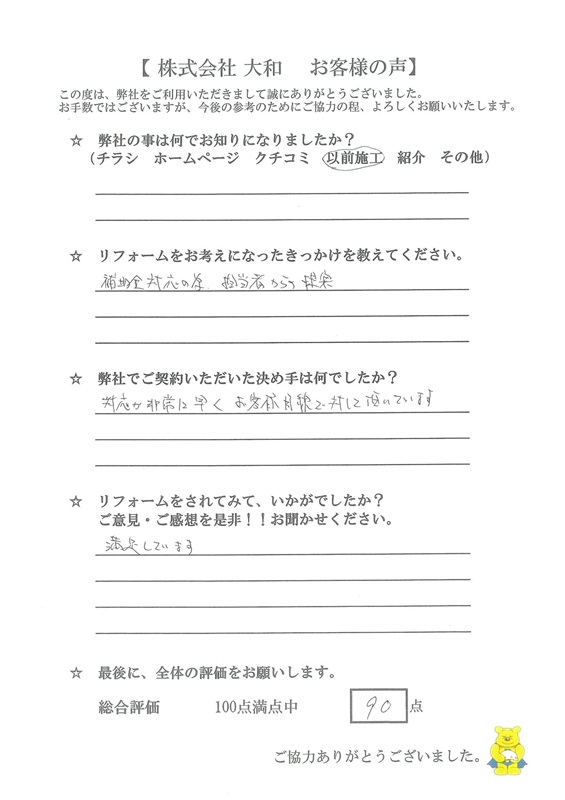 【 株式会社 大和　お客様の声】
この度は、弊社をご利用いただきまして誠にありがとうございました。
お手数ではございますが、今後の参考のためにご協力の程、よろしくお願いいたします。
☆　弊社の事は何でお知りになりましたか？
（チラシ　ホームページ　クチコミ　以前施工　紹介　その他）
☆　リフォームをお考えになったきっかけを教えてください。
補助金対応の為　担当者からの提案
☆　弊社でご契約いただいた決め手は何でしたか？
対応が非常に早く　お客様目線で対して頂いています
☆　リフォームをされてみて、いかがでしたか？
ご意見・ご感想を是非！！お聞かせください。
満足しています
☆　最後に、全体の評価をお願いします。
総合評価　　100点満点中　　90　点
ご協力ありがとうございました。